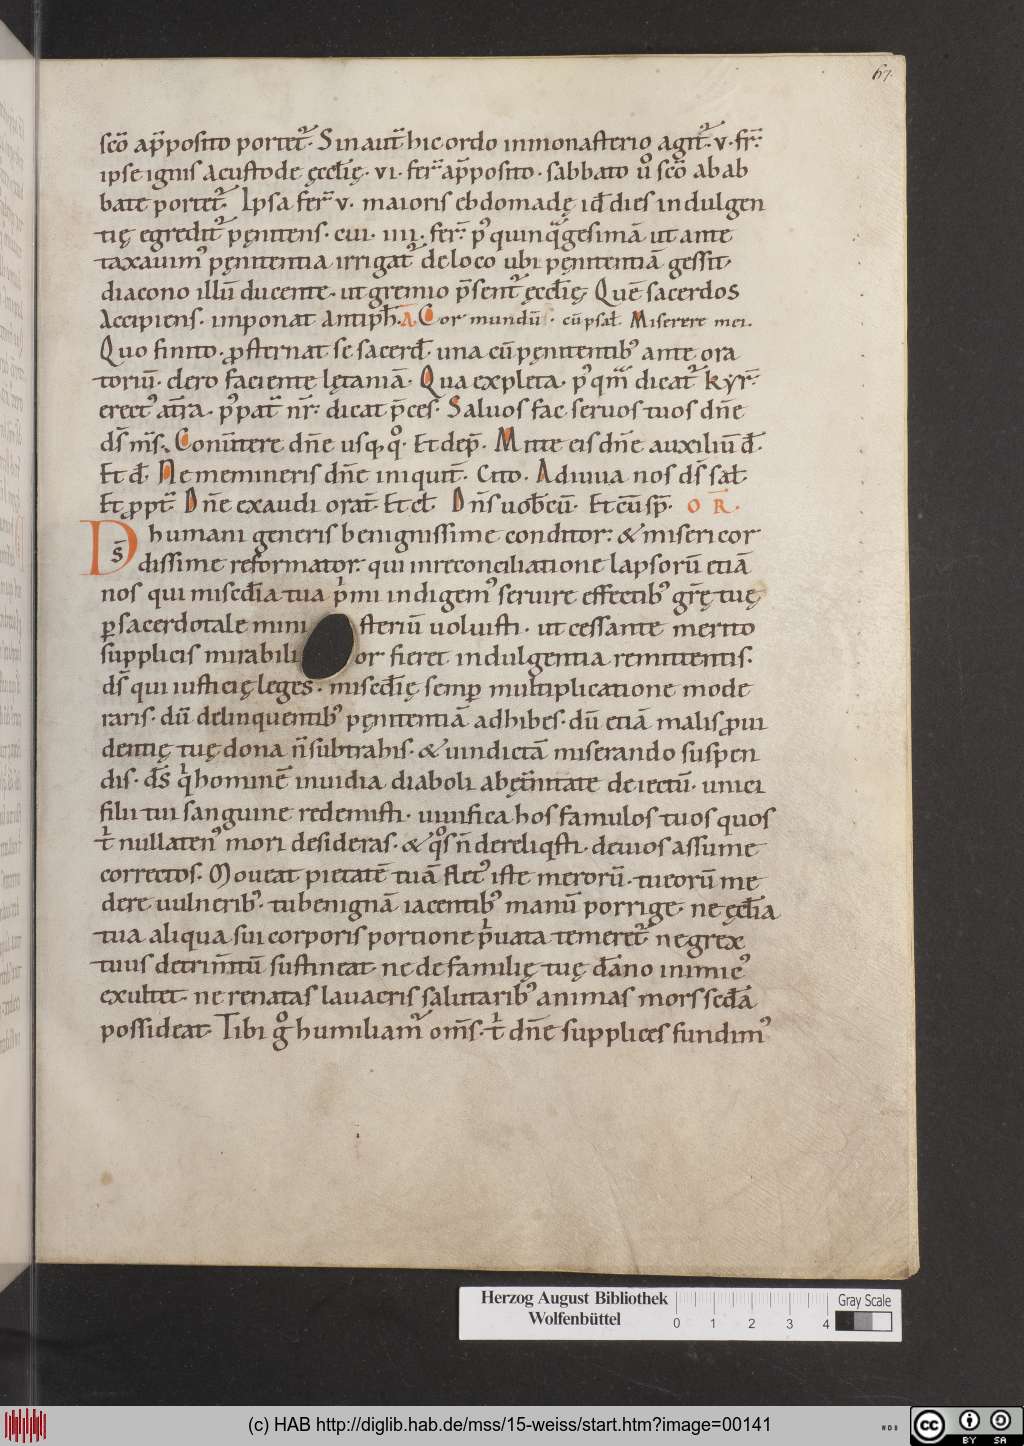 67.
scō ap̄posito portet᷒. Sin aut̄ hic ordo in monasterio agit᷒. v. fr̄:
ipse ignis a custode ęccl̄ię. vi. fer̄ ap̄posito. sabbato ů scō ab ab
bate portet᷒. Ipsa fer̄ v. maioris ebdomadę id̄ dies indulgen
tię egredit᷒ pęnitens. cui. iiii. fer̄. pꝰ quinq̄gesimā ut ante
taxauimꝰ pęnitentia irrigat᷒ de loco ubi pęnitentiā gessit.
diacono illū ducente. ut gremio p̄sent᷒ ęccl̄ię. Quē sacerdos
Accipiens. imponat Antiph̄. A Cor mundū. cū psal̄. Miserere mei.
Quo finito. ꝓsternat se sacerd̄ una cū pęnitentibꝰ ante ora
toriū. clero faciente lętaniā. Qua expleta. pꝰ qm̄ dicat᷒ kyr̄:
erectꝰ at̄ia. pꝰ pat̄ nr̄: dicat p̄ces. Saluos fac seruos tuos dn̄e
ds̄ ms̄. Conūtere dn̄e usq. q̊. Et dep̄. Mitte eis dn̄e auxiliū d̄.
Et d̄. Ne memineris dn̄e iniquit̄. Cito. Adiuua nos ds̄ sal̄.
Et ꝓpt̄ Dn̄e exaudi orat̄. Et cl̄. Dn̄s uob̄cū. Et cū sp̄. O R̄.
Ds̄ humani generis benignissime conditor: & misericor
dissime reformator: qui in reconciliatione lapsorū etiā
nos qui misc̄dia tua p̍mi indigemꝰ seruire effectibꝰ gr̄ę tuę
ꝑ sacerdotale mini steriū uoluisti. ut cessante merito
supplicis mirabili or fieret indulgentia remittentis.
ds̄ qui iusticię leges. misc̄dię semꝑ multiplicatione mode
raris. dū delinquentibꝰ pęnitentiā adhibes. dū etiā malis ꝓui
dentię tuę dona n̄ subtrahis. & uindictā miserando suspen
dis. ds̄ q̍ hominē inuidia diaboli ab ęt̄nitate deiectū. unici
filii tui sanguine redemisti. uiuifica hos famulos tuos quos
t̍ nullatenꝰ mori desideras. & q̊s n̄ derelиqsti. deuios assume
correctos. Moueat pietatē tuā fletꝰ iste merorū. tu eorū me
dere uulneribꝰ. tu benignā iacentibꝰ manū porrige. ne ęccl̄ia
tua aliqua sui corporis portione p̍uata temeret᷒. ne grex
tuus detrim̄tū sustineat. ne de familię tuę dāno inimicꝰ
exultet. ne renatas lauacris salutaribꝰ animas mors sc̄da
possideat. Tibi g̊ humiliam᷒ om̄s. t̍ dn̄e supplices fundimꝰ
Herzog August Bibliothek
Wolfenbüttel
0 1 2 3 4
Gray Scale
(c) HAB http://diglib.hab.de/mss/15-weiss/start.htm?image=00141
cc BY SA